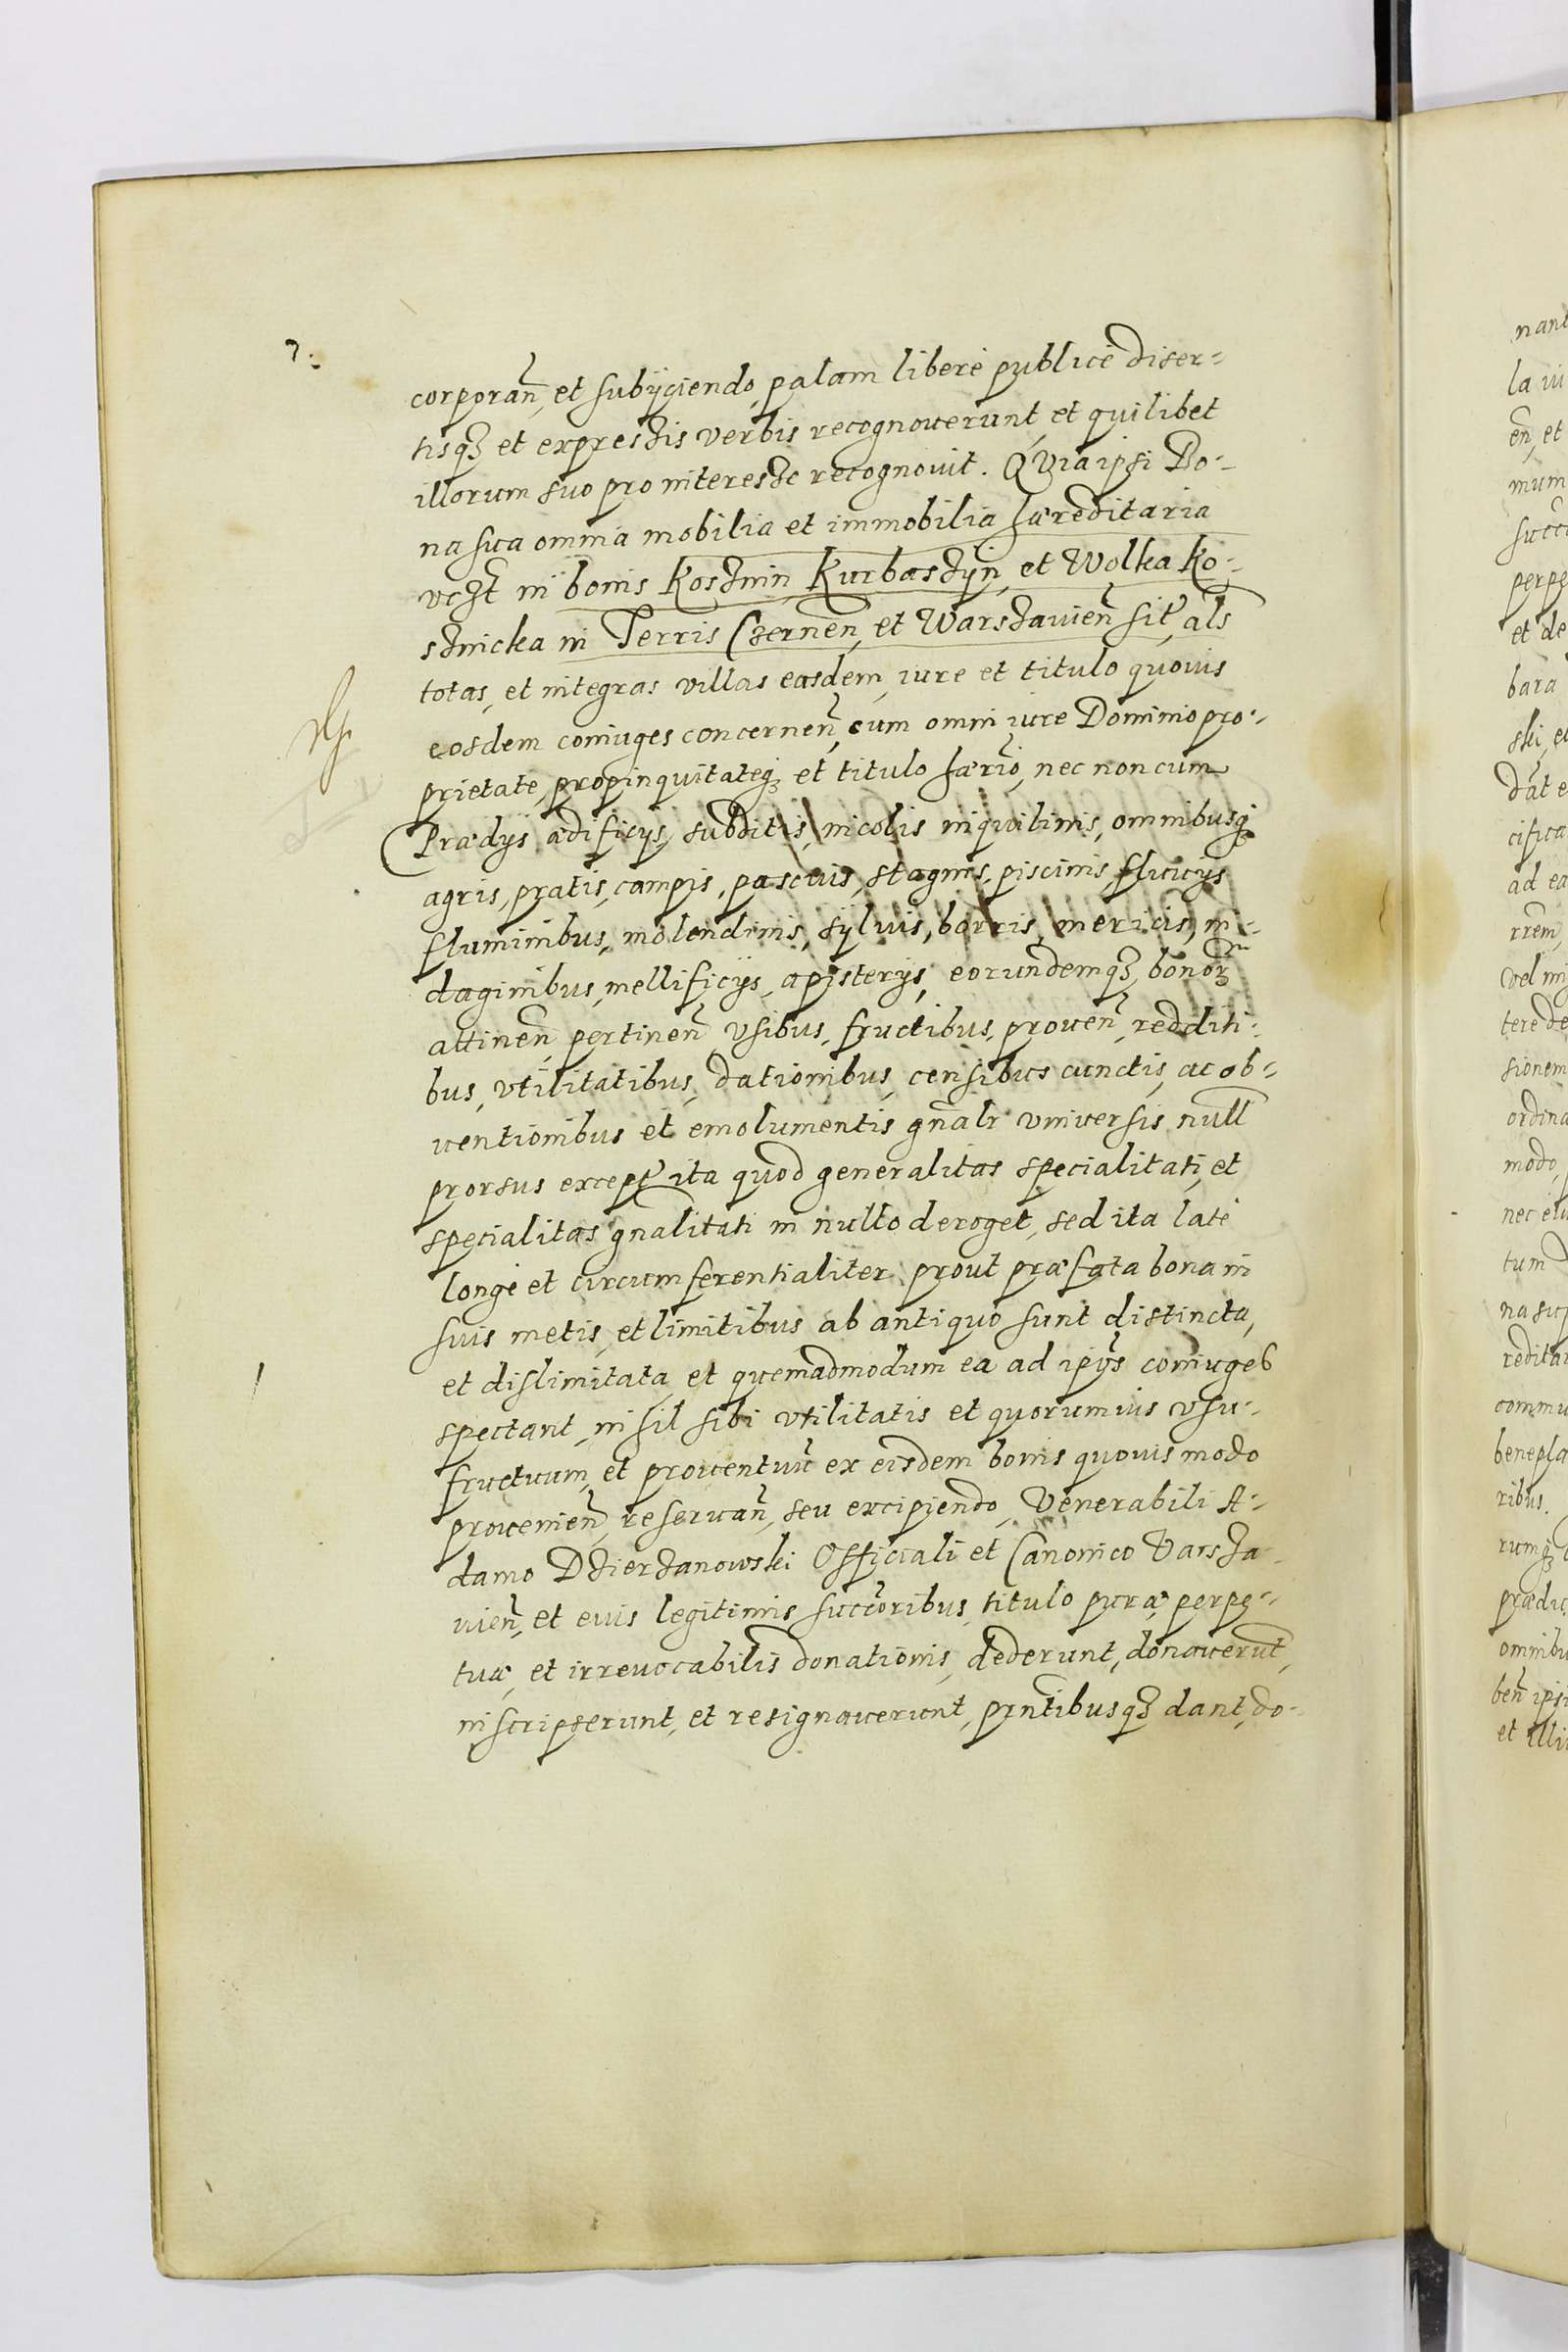 7.
corporañ, et subÿciendo, palam liberè publicè diser-
tisqȝ et expressis verbis recognouerunt, et quilibet
illorum suo pro interesse recognouit. QVia ipsi Bo-
na sua omnia mobilia et immobilia hæreditaria
vczt in bonis Koszinin, Kurbaszÿn, et Wolka Ko-
sznicka in Terris Czerneñ, et Warszauieñ sit̃, als
totas, et integras villas easdem, iure et titulo quouis
eosdem coniuges concerneñ, cum omni iure Dominio pro-
prietate, propinquitateqȝ et titulo hærĩo, nec non cum
Prædÿs, ædificÿs, subditis, incolis inquilinis, omnibusqȝ
agris, pratis, campis, pascuis, stagnis, piscinis, fluuÿs
fluminibus, molendinis, sÿluis, borris, mericis, in-
daginibus, mellificÿs, apisterÿs, eorundemqȝ bonoꝝ
attineñ, pertineñ, vsibus, fructibus, proueñ, redditi-
bus, vtilitatibus, dationibus, censibus cunctis, ac ob-
uentionibus et emolumentis gñalr vniuersis null
prorsus except̃ ita quod generalitas specialitati, et
specialitas gñalitati in nullo deroget, sed ita latè
longè et circumferentialiter prout præfata bona in
suis metis, et limitibus ab antiquo sunt distincta,
et dislimitata, et quemadmodum ea ad ip̃s coniuges
spectant, nihil sibi vtilitatis et quorumuis vsu-
fructuum, et prouentuũ ex eisdem bonis quouis modo
prouenieñ, reseruañ, seu excipiendo, Venerabili A-
damo Dzierzanowski Officiali et Canonico Varsza-
uieñ, et euis legitimis succ̃oribus, titulo puræ perpe-
tuæ, et irreuocabilis donationis, dederunt, donauerũt,
inscripserunt, et resignauerunt, pñtibusqȝ dant, do-
nant
la
eñ, et
mum
succ
perpe
et de
bara
ski, e
dãt e
cifica
ad ea
rrem
vel
tere de
sionem
ordina
modo
nec
tum
na
redita
commu
benepla
ribus.
rumqȝ
prædic
omnibu
beñ ipsi
et illi